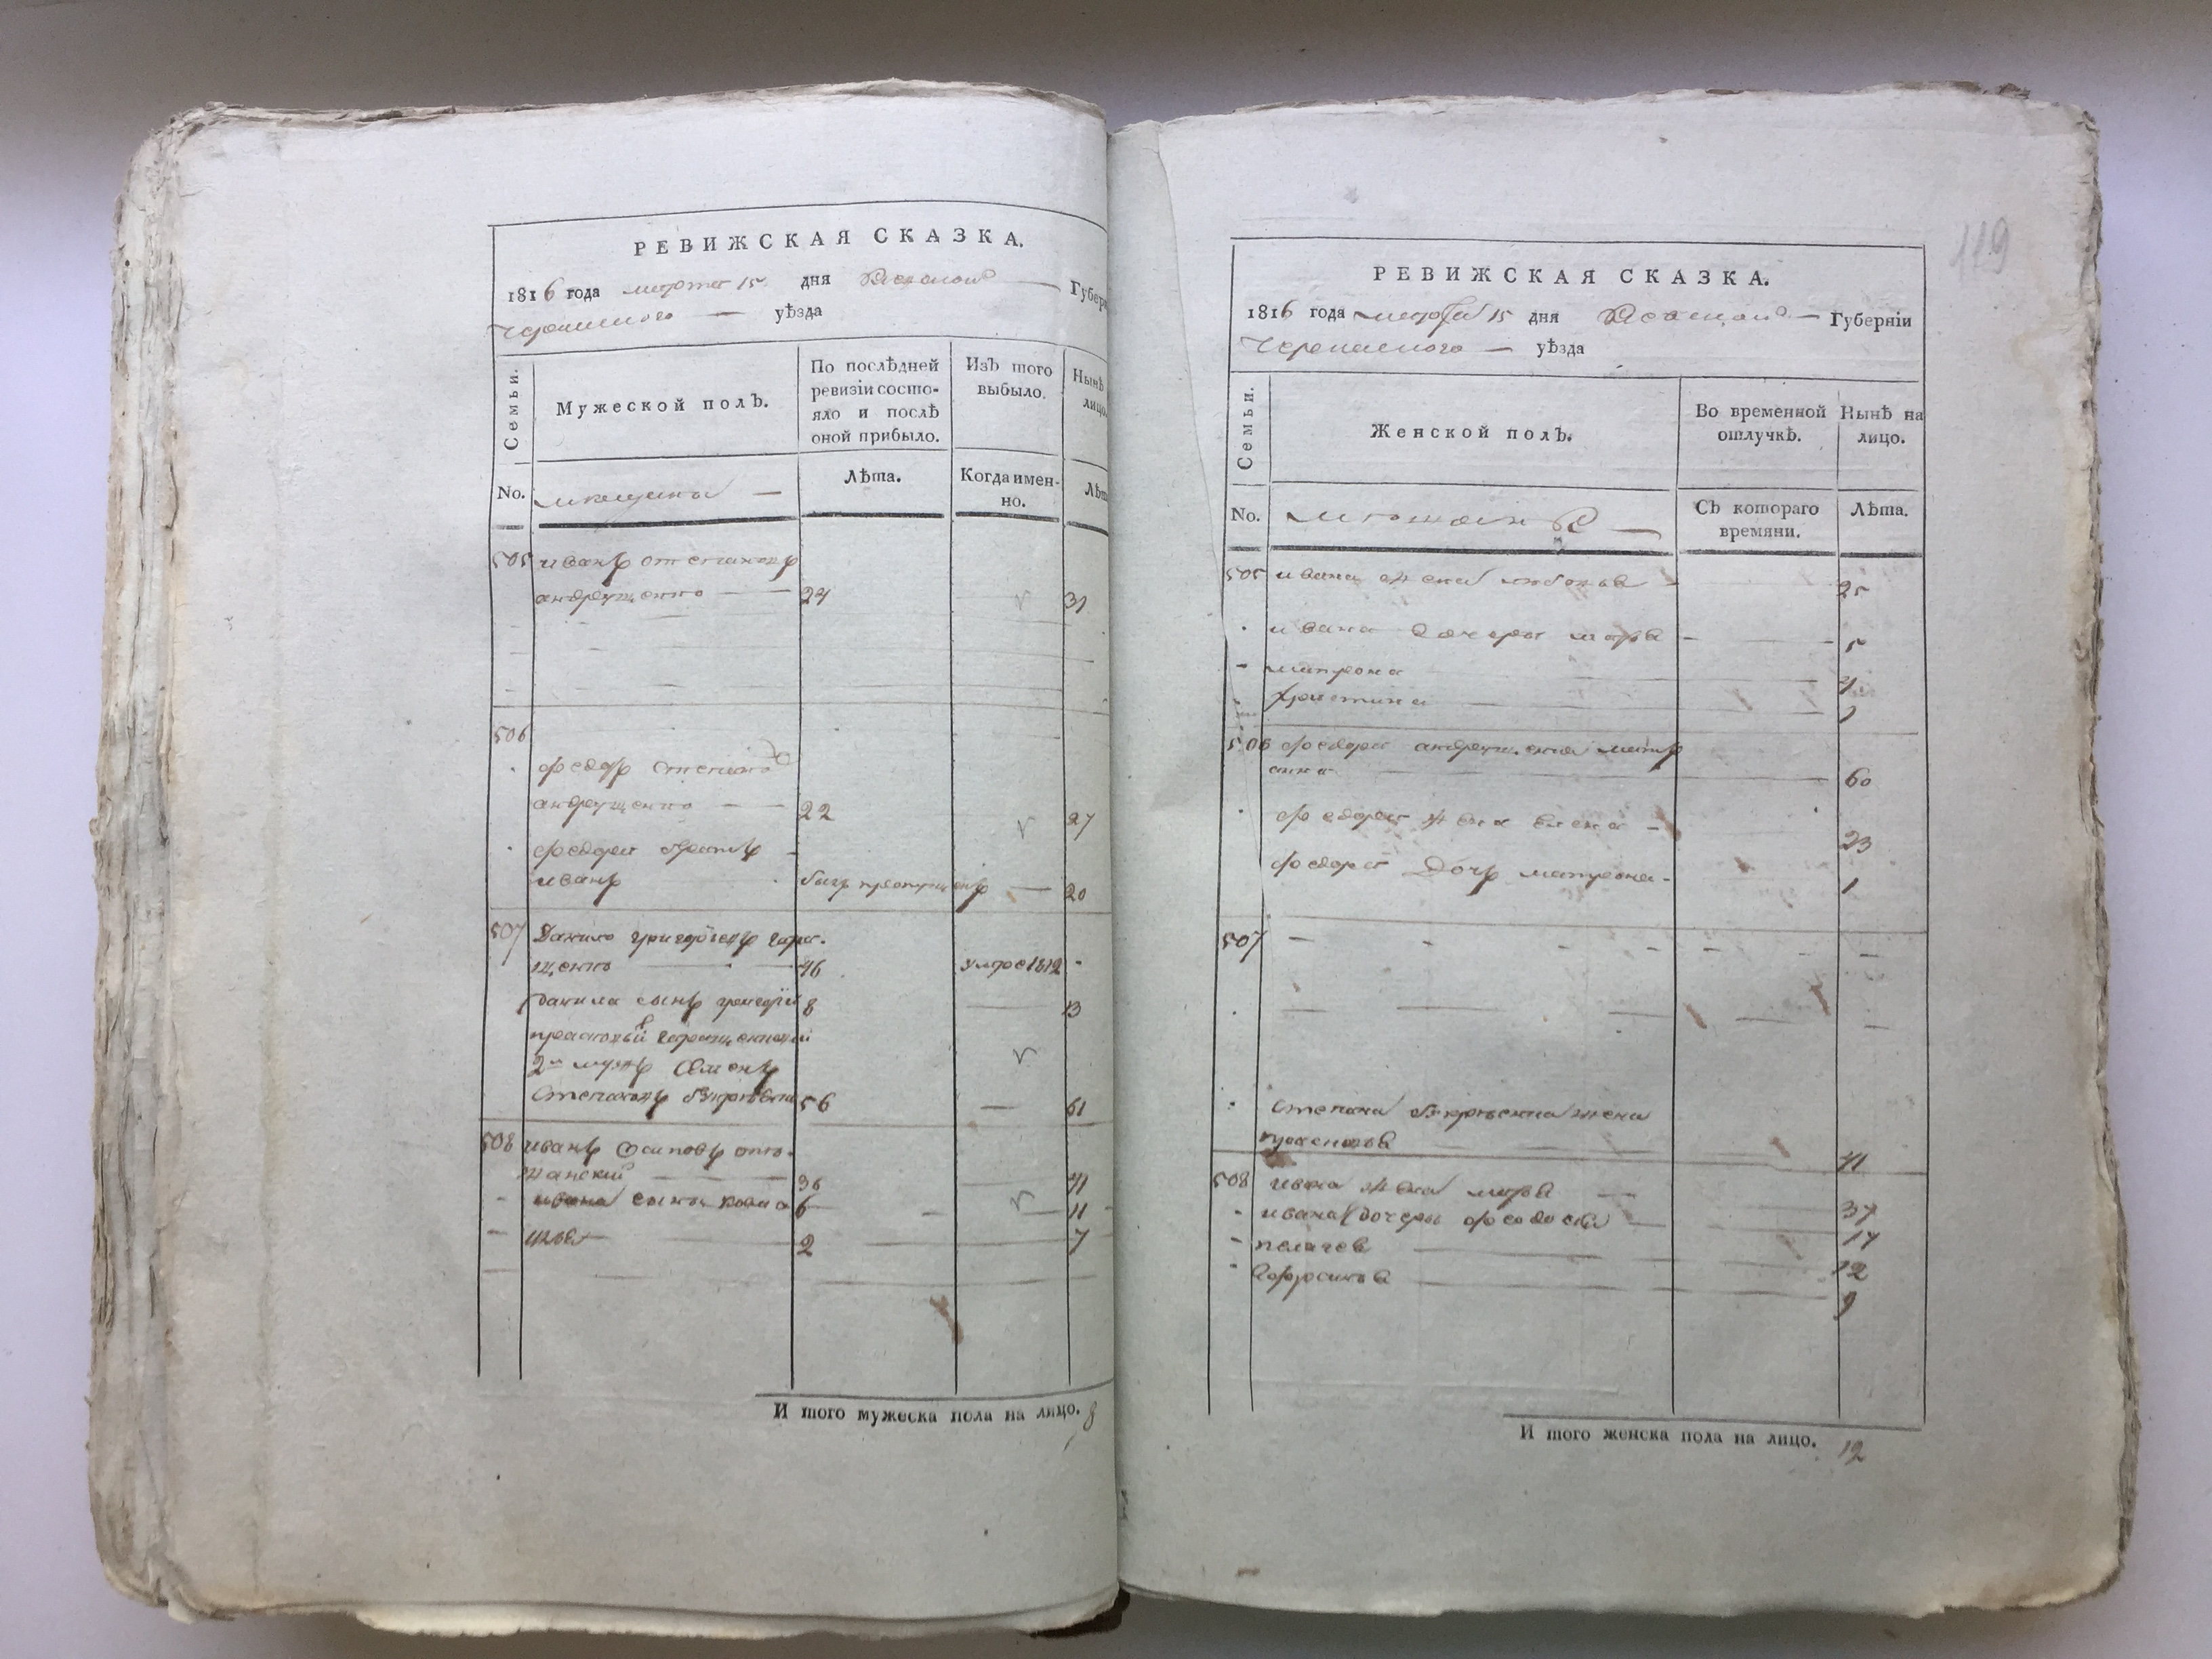 РЕВИЖСКАЯ СКАЗКА.
1816 года марта 15 дня Губер
уѣзда
Семьи.
Мужеской полЪ.
По послѣдней
ревизіи состо-
яло и послѣ
оной прибыло.
ИзЪ того
выбыло.
Нынѣ
лицо.
No.
мещина
Лѣта.
Когда имен-
но.
Лѣт
505 иванъ степановъ
андрущенко 24 31
506
федоръ степановъ
андрущенко 22 27
федора братъ
иванъ былъ пропущенъ 20
507 Данило григорьевъ гара-
щенко 46 умре 1812
данила сынъ григорій 8 13
2й мужъ
степановъ 56 61
508 иванъ Осиповъ
жанский 36 41
ивана сынъ 6 11
илья 2 7
И того мужеска пола на лицо. 8
119
РЕВИЖСКАЯ СКАЗКА.
1816 года марта 15 дня Губерніи
уѣзда
Семьи.
Женской полЪ.
Во временной
отлучкѣ.
Нынѣ на
лицо.
No.
СЪ котораго
времяни.
Лѣта.
505 ивана жена любовья 25
ивана дочери марья 5
матрона 4
христина 1
506 федора андрущенка мать
анна 60
федора жена елена 23
федора дочь матрона 1
507
степана жена
прасковья 41
508 ивана жена марья 37
ивана дочери федосья 14
пелагея 12
афросинья 9
И того женска пола на лицо. 12